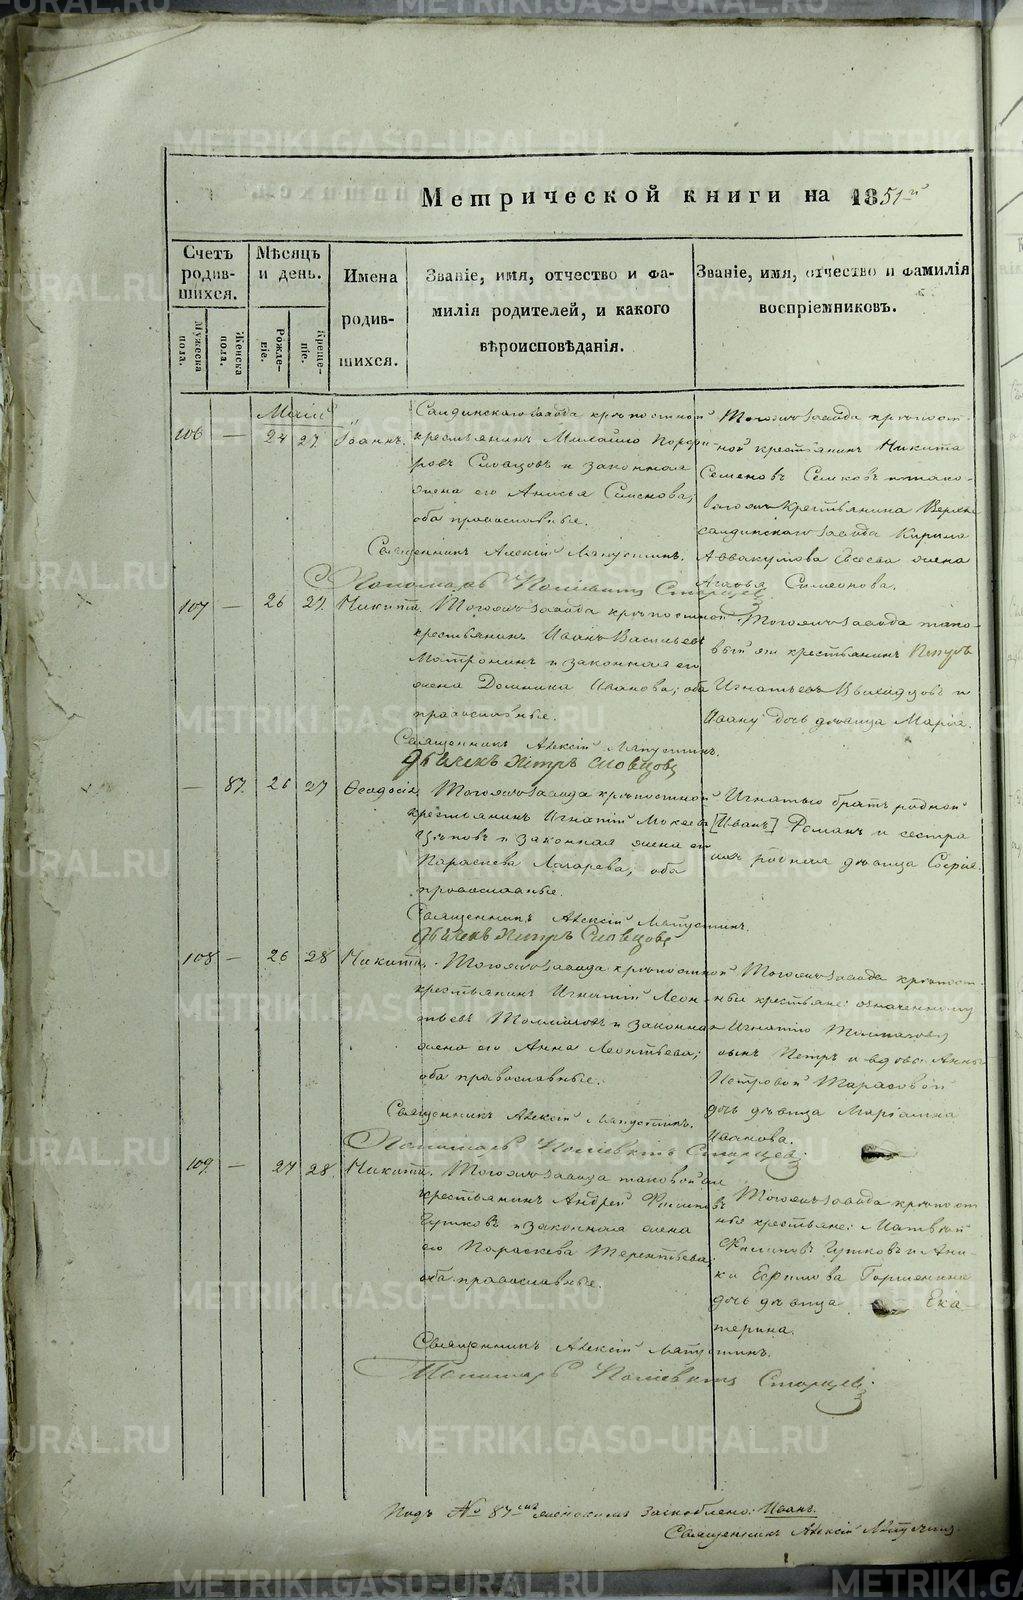 Метрической книги на 1851й
Счетъ родившихся.
Мѣсяцъ и день.
Имена родившихся.
Званіе, имя, отчество и фамилія родителей, и какого вѣроисповѣданія.
Званіе, имя, отчество и фамилія воспріемниковъ.
Мужеска пола.
Женска пола.
Рожденіе.
Крещеніе.
106 — 24 27 Іоаннъ.
Салдинскаго завода крѣпостной
крестьянинъ Михайло Порфи-
ровъ Словцовъ и законная
жена его Анисья Симонова,
оба православные.
Священникъ Алексій Ляпустинъ.
Пономарь Поліевктъ Старцевъ.
Тогожъ завода крѣпост-
ной крестьянинъ Никита
Семеновъ и тако-
вагожъ крестьянина Верхне
салдинскаго завода Кирила
Аввакумова жена
Агафья Симеонова.
107 — 26 27. Никита.
Тогожъ завода крѣпостной
крестьянинъ Иванъ Васильевъ
Матронинъ и законная его
жена Домника Иванова, оба
православные.
Священникъ Алексій Ляпустинъ.
Дьячекъ Петръ Словцовъ
Тогожъ завода тако-
вый же крестьянинъ
Игнатьевъ и
Ивану дочь дѣвица Марія.
— 87. 26 27 Ѳеодосія.
Тогожъ завода крѣпостной
крестьянинъ Игнатій Мокеевъ
и законная жена его
Параскева Лазарева, оба
православные.
Священникъ Алексій Ляпустинъ.
Дьячекъ Петръ Словцовъ
Игнатью братъ родной
[Иванъ] Романъ и сестра
ихъ родная дѣвица Софія.
108 — 26 28 Никита.
Тогожъ завода крѣпостной
крестьянинъ Игнатій Леон-
тьевъ Толмачовъ и законная
жена его Анна Леонтьева,
оба православные.
Священникъ Алексій Ляпустинъ.
Пономарь Поліевктъ Старцевъ.
Тогожъ завода крѣпост-
ные крестьяне: означенному
Игнатію Толмачову
сынъ Петръ и вдовы Анны
Петровой Тарасовой
дочь дѣвица Маріамна
Иванова.
109. — 27 28. Никита.
Тогожъ завода таковой же
крестьянинъ Андрей Филиповъ
и законная жена
его Параскева Терентьева,
оба православные.
Священникъ Алексій Ляпустинъ.
Пономарь Поліевктъ Старцевъ.
Тогожъ завода крѣпост-
ные крестьяне: Матвей
Филиповъ и Ани-
ки Ефимова
дочь дѣвица Ека-
терина.
Подъ № 87мъ заскоблено: Иванъ.
Священникъ Алексій Ляпустинъ.
METRIKI.GASO-URAL.RU